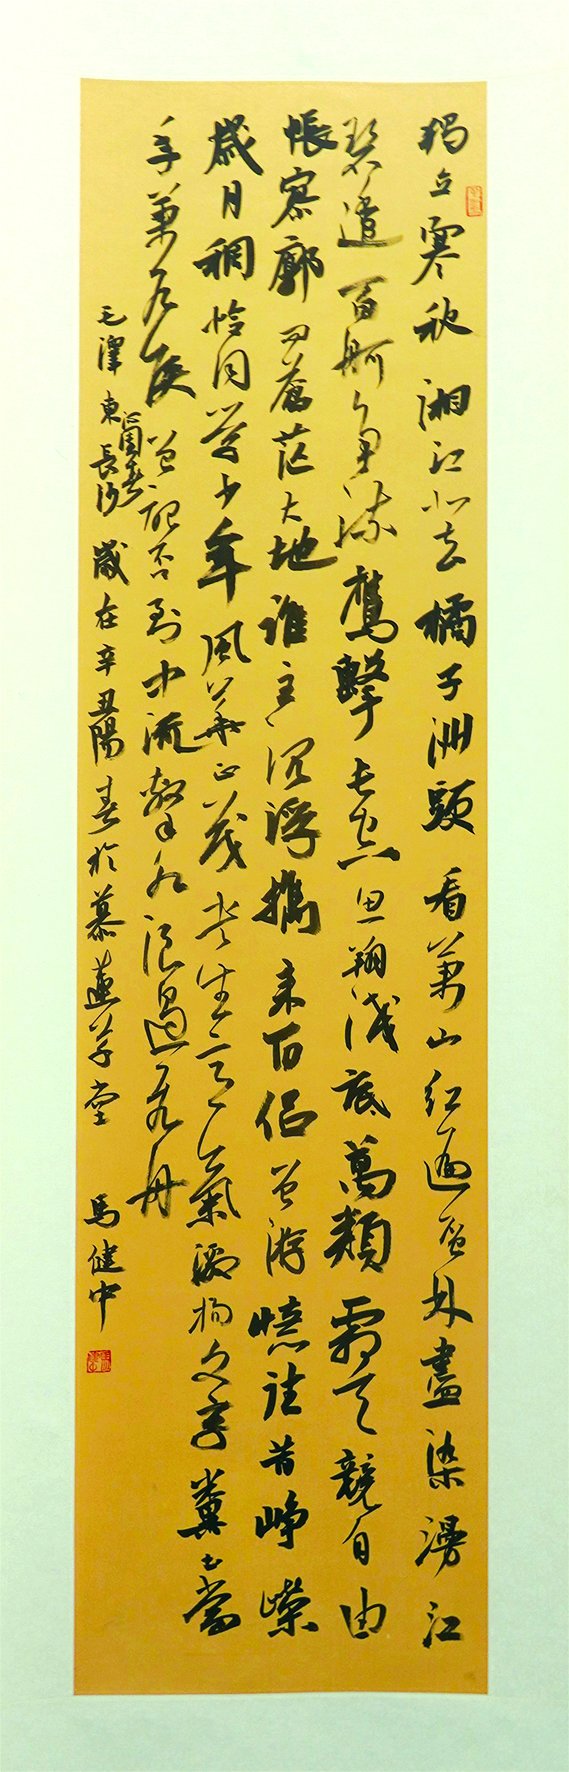 獨立寒秋湘江北去橘子洲頭看萬山紅遍層林盡染漫江
碧透百舸争流鷹擊長空魚翔淺底萬類霜天競自由
悵寥廓問蒼茫大地誰主沉浮攜來百侣曾游憶往昔崢嶸
歲月稠恰同學少年風華正茂書生意氣激揚文字糞土當
年萬户侯曾記否到中流擊水浪遏飛舟
毛澤東沁園春長沙歲在辛丑陽春於慕蓮草堂 馬健中